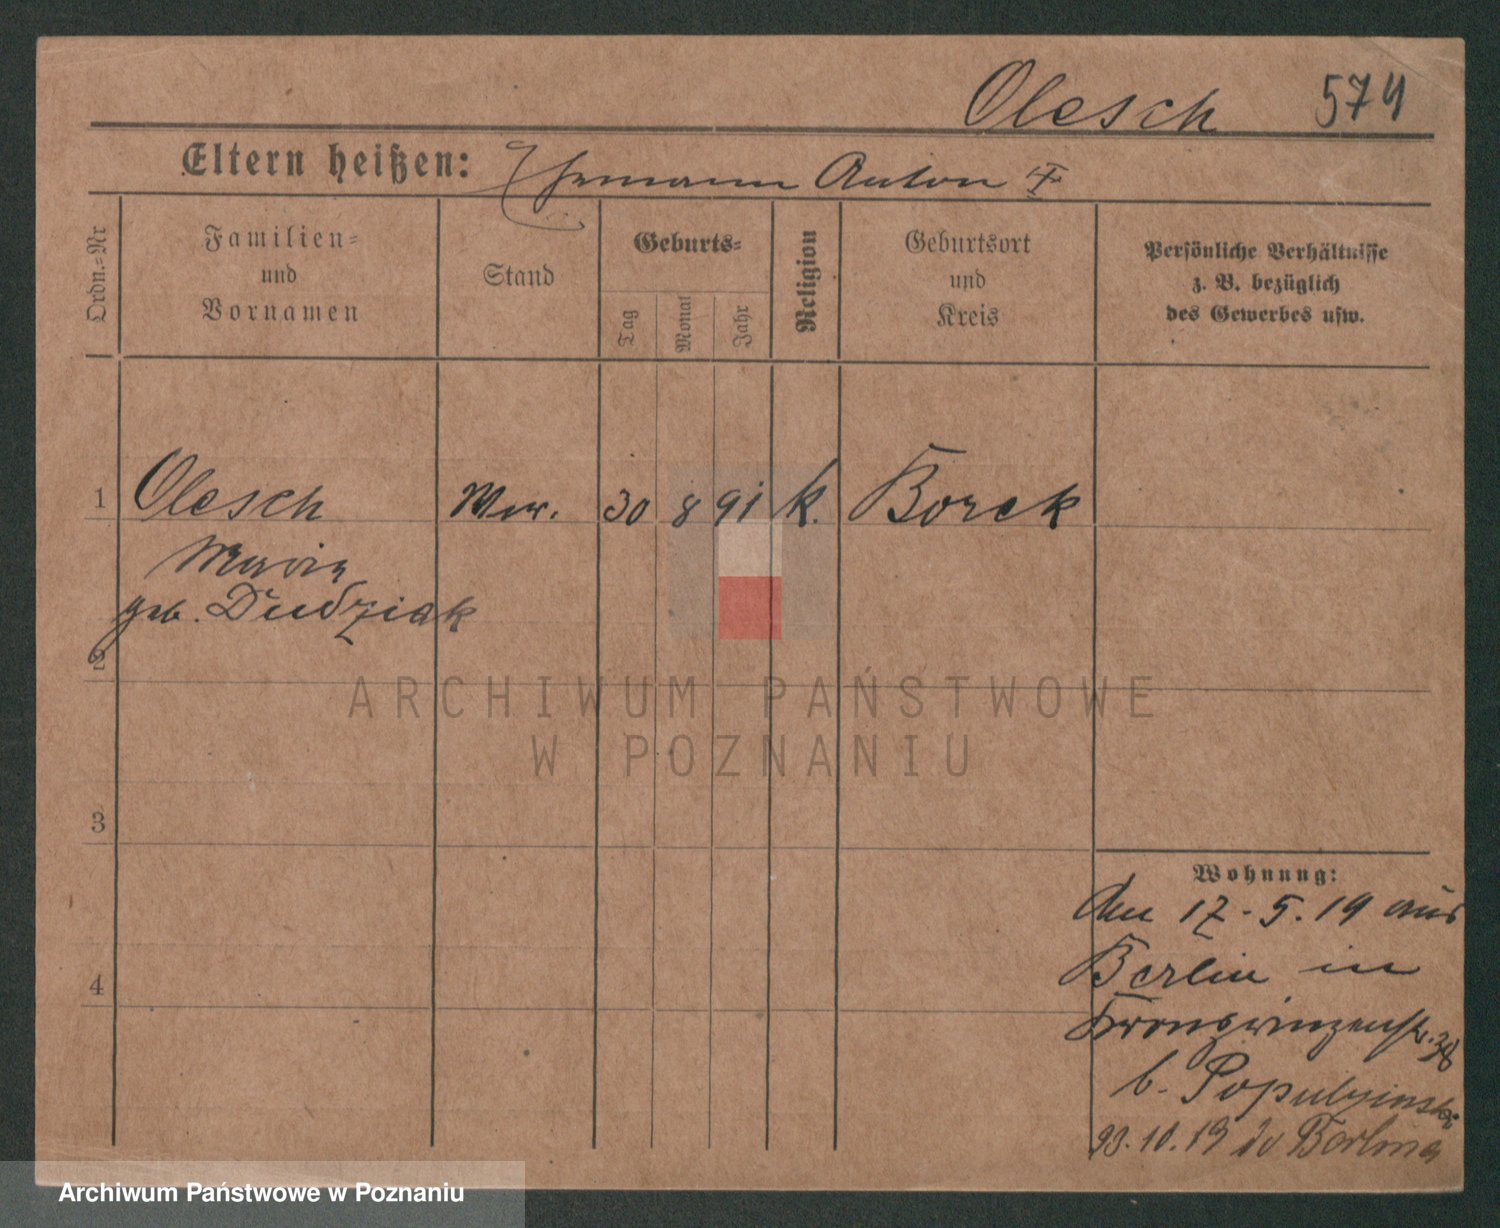 Olesch 574
Eltern heißen: Ehemann Anton
Ordn.-Nr
Familien-
und
Vornamen
Stand
Geburts-
Tag
Monat
Jahr
Religion
Geburtsort
und
Kreis
Persönliche Verhältnisse
z. B. bezüglich
des Gewerbes usw.
1 Olesch Ww. 30 8 91 k. Borek
Maria
geb. Dudziak
2
3
4
Wohnung:
Am 17-5.19 aus
Berlin in
Kronprinzenstr. 38
b.
23.10.19 do Berlina
ARCHIWUM PAŃSTWOWE
W POZNANIU
Archiwum Państwowe w Poznaniu